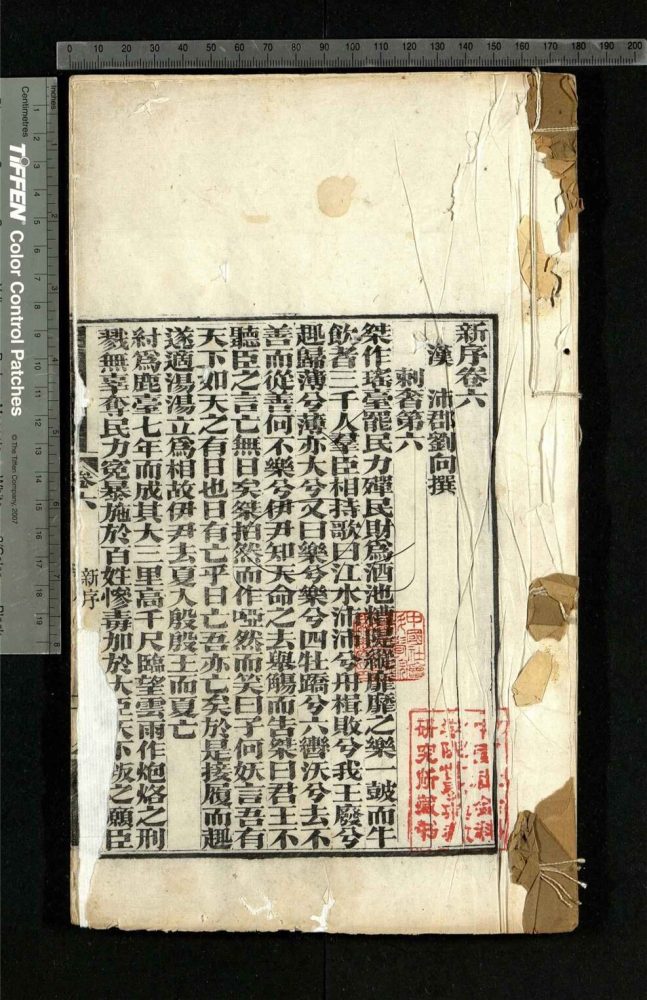 新序卷六
漢 沛郡劉向撰
刺奢第六
桀作瑤臺罷民力殫民財為酒池糟隄縱靡靡之樂一鼓而牛
飲者三千人羣臣相持歌曰江水沛沛兮舟楫敗兮我王廢兮
趣歸薄兮薄亦大兮又曰樂兮樂兮四牡蹻兮六轡沃兮去不
善而從善何不樂兮伊尹知天命之去舉觴而告桀曰君王不
聽臣之言亡無日矣桀拍然而作啞然而笑曰子何妖言吾有
天下如天之有日也日有亡乎日亡吾亦亡矣於是接履而趣
遂適湯湯立為相故伊尹去夏入殷殷王而夏亡
紂為鹿臺七年而成其大三里高千尺臨望雲雨作炮烙之刑
戮無辜奪民力冤暴施於百姓慘毒加於大臣天下叛之願臣
卷六
新序
研究所藏書
0 10 20 30 40 50 60 70 80 90 100 110 120 130 140 150 160 170 180 190 200
Inches
Centimetres
TIFFEN Color Control Patches
© The Tiffen Company, 2007
1 2 3 4 5 6 7 8
1 2 3 4 5 6 7 8 9 10 11 12 13 14 15 16 17 18 19